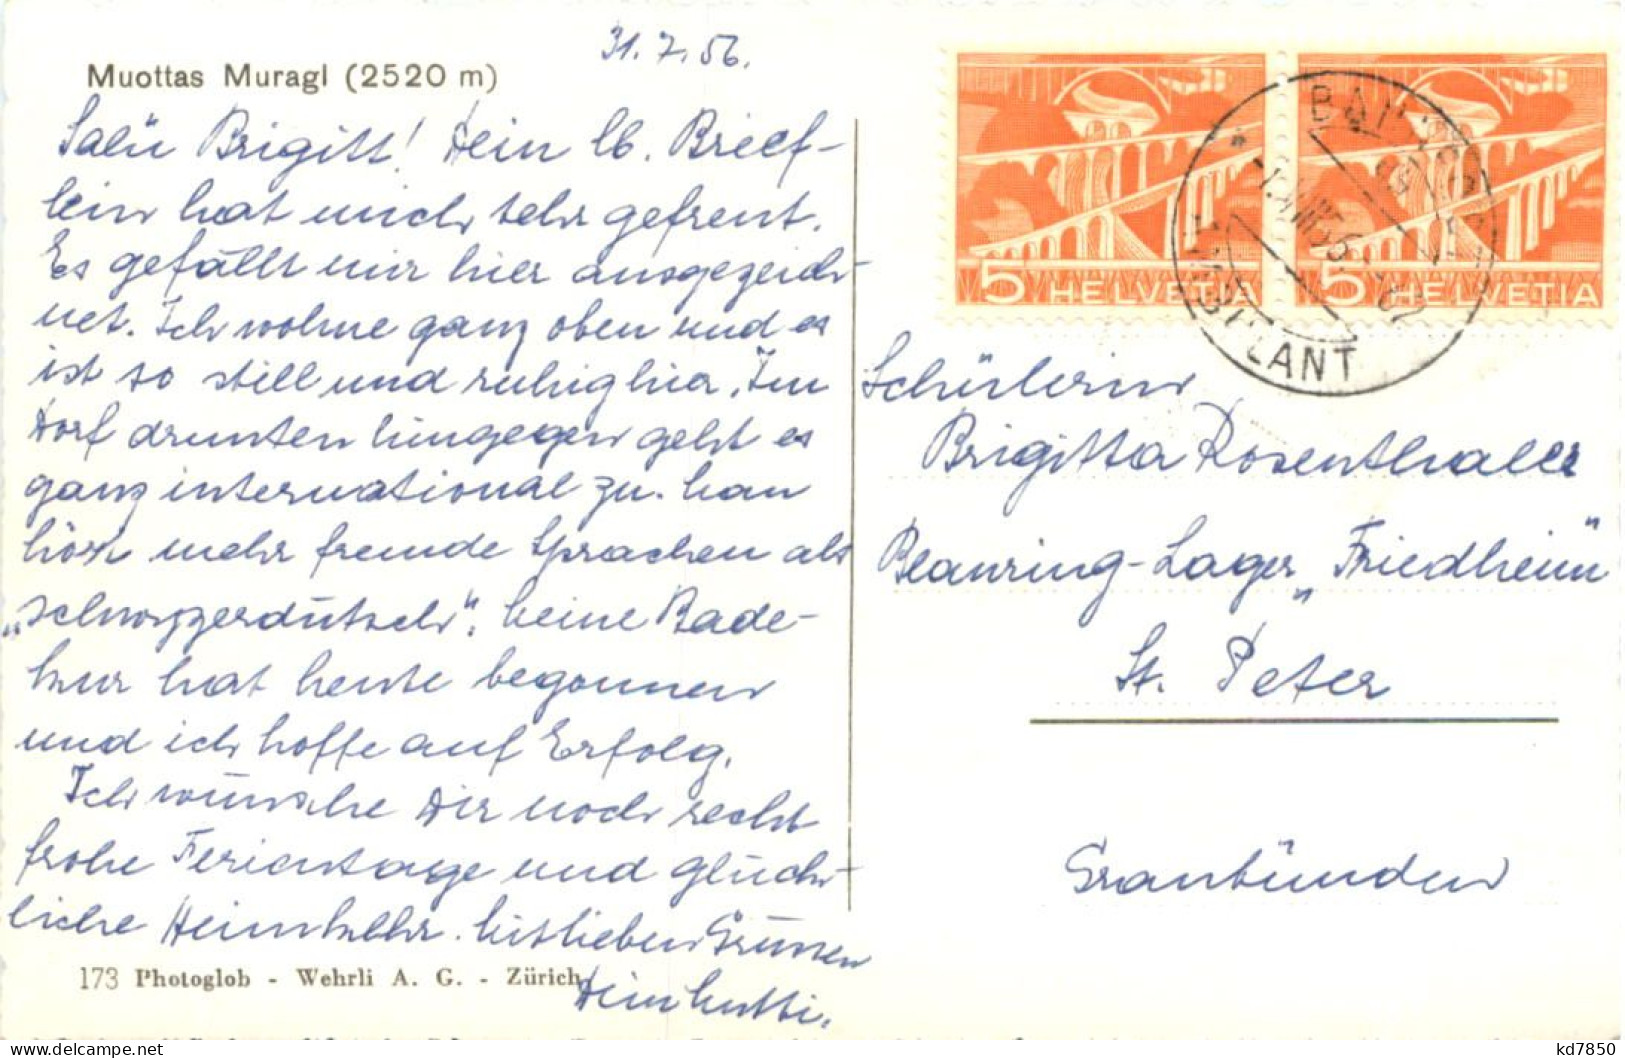 31. 7. 56.
Muottas Muragl (2520 m)
Salü Brigitt! Dein lb. Brief-
lein hat mich sehr gefreut.
Es gefällt mir hier ausgezeich-
net. Ich wohne ganz oben und es
ist so still und ruhig hier. Im
Dorf drunten hingegen geht es
ganz international zu. Man
hört mehr fremde Sprachen als
„Schwyzerdütsch“. Meine Bade-
kur hat heute begonnen
und ich hoffe auf Erfolg.
Ich wünsche Dir noch recht
frohe Ferientage und glück-
liche Heimkehr. Mit lieben Grüssen
Dein Mutti.
173 Photoglob - Wehrli A. G. - Zürich
5 HELVETIA
5 HELVETIA
Schülerin
Brigitta Rosenthaler
Blauring-Lager „Friedheim“
St. Peter
Graubünden
kd7850